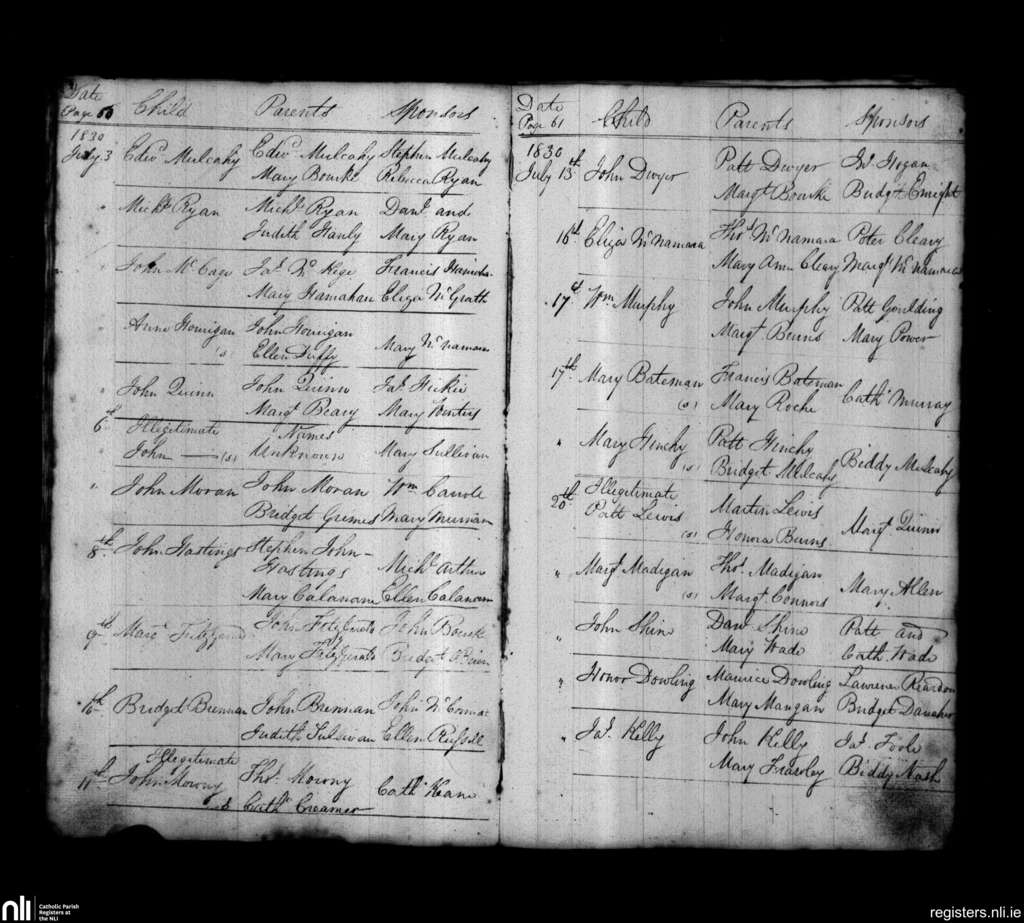 Date
Page 60 Child Parents Sponsors
1830
July 3 Edwd Mulcahy Edwd Mulcahy Stephen Mulcahy
Mary Bourke Rebecca Ryan
" Michl Ryan Michl Ryan Danl and
Judith Hanly Mary Ryan
" John McCage Jas Mc Kege Francis
Mary Hanrahan Eliza McGrath
Anne Hourigan John Hourigan
(s) Ellen Duffy Mary McNamara
" John Quinn John Quinn Jas Hickie
Margt Beary Mary Winters
6th Illegitimate Names
John — (s) Unknown Mary Sullivan
" John Moran John Moran Wm Carrole
Bridget Grimes Mary
8th John Hastings Stephen John-
Hastings Michl Arthur
Mary Calanan Ellen Calanan
9th Margt Fitzgerald John Fitzgerald John Bourke
Mary Fitzgerald Bridget OBrien
10th Bridget Brennan John Brennan John
Judith Sulivan Ellen Russell
Illegitimate
11th John Morony Thos Morony Cath Keane
& Cathe Creamer
Date
Page 61 Child Parents Sponsors
1830
July 13th John Dwyer Patt Dwyer Jno Hogan
Margt Bourke Budgt Enright
16th Eliza McNamara Thos McNamara Peter Cleary
Mary Ann Cleary Margt McNamara
17th Wm Murphy John Murphy Patt Goulding
Margt Beurns Mary Power
17th Mary Bateman Francis Bateman
(s) Mary Roche Cath Murray
" Mary Hinchy Patt Hinchy
(s) Bridget Mulcahy Biddy Mulcahy
20th Illegitimate
Patt Lewis Martin Lewis
(s) Honora Beurns Margt Quinn
" Margt Madigan Thos Madigan
(s) Margt Connors Mary Allen
" John Shine Danl Shine Patt and
Mary Wade Cath Wade
" Honor Dowling Maurice Dowling Lawrence Reardon
Mary Mangan Bridget Danaher
" Jas Kelly John Kelly Jas Toole
Mary Frawley Biddy Nash
nli
Catholic Parish
Registers at
the NLI
registers.nli.ie